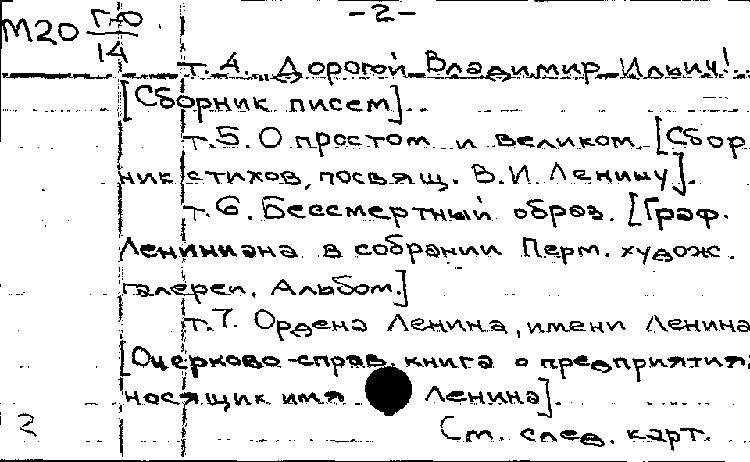 -2-
М20 Г-Ю
14
т. 4. Дорогой Владимир Ильич!
[Сборник писем].
т.5. О простом и великом [Сбор
ник стихов, посвящ. В.И. Ленину].
т.6. Бессмертный образ. [Граф.
Лениниана в собрании Перм. худож.
галереи. Альбом.]
т.7. Ордена Ленина, имени Ленина
[Очерково-справ. книга о предприятиях
носящих имя Ленина].
См. след. карт.
2